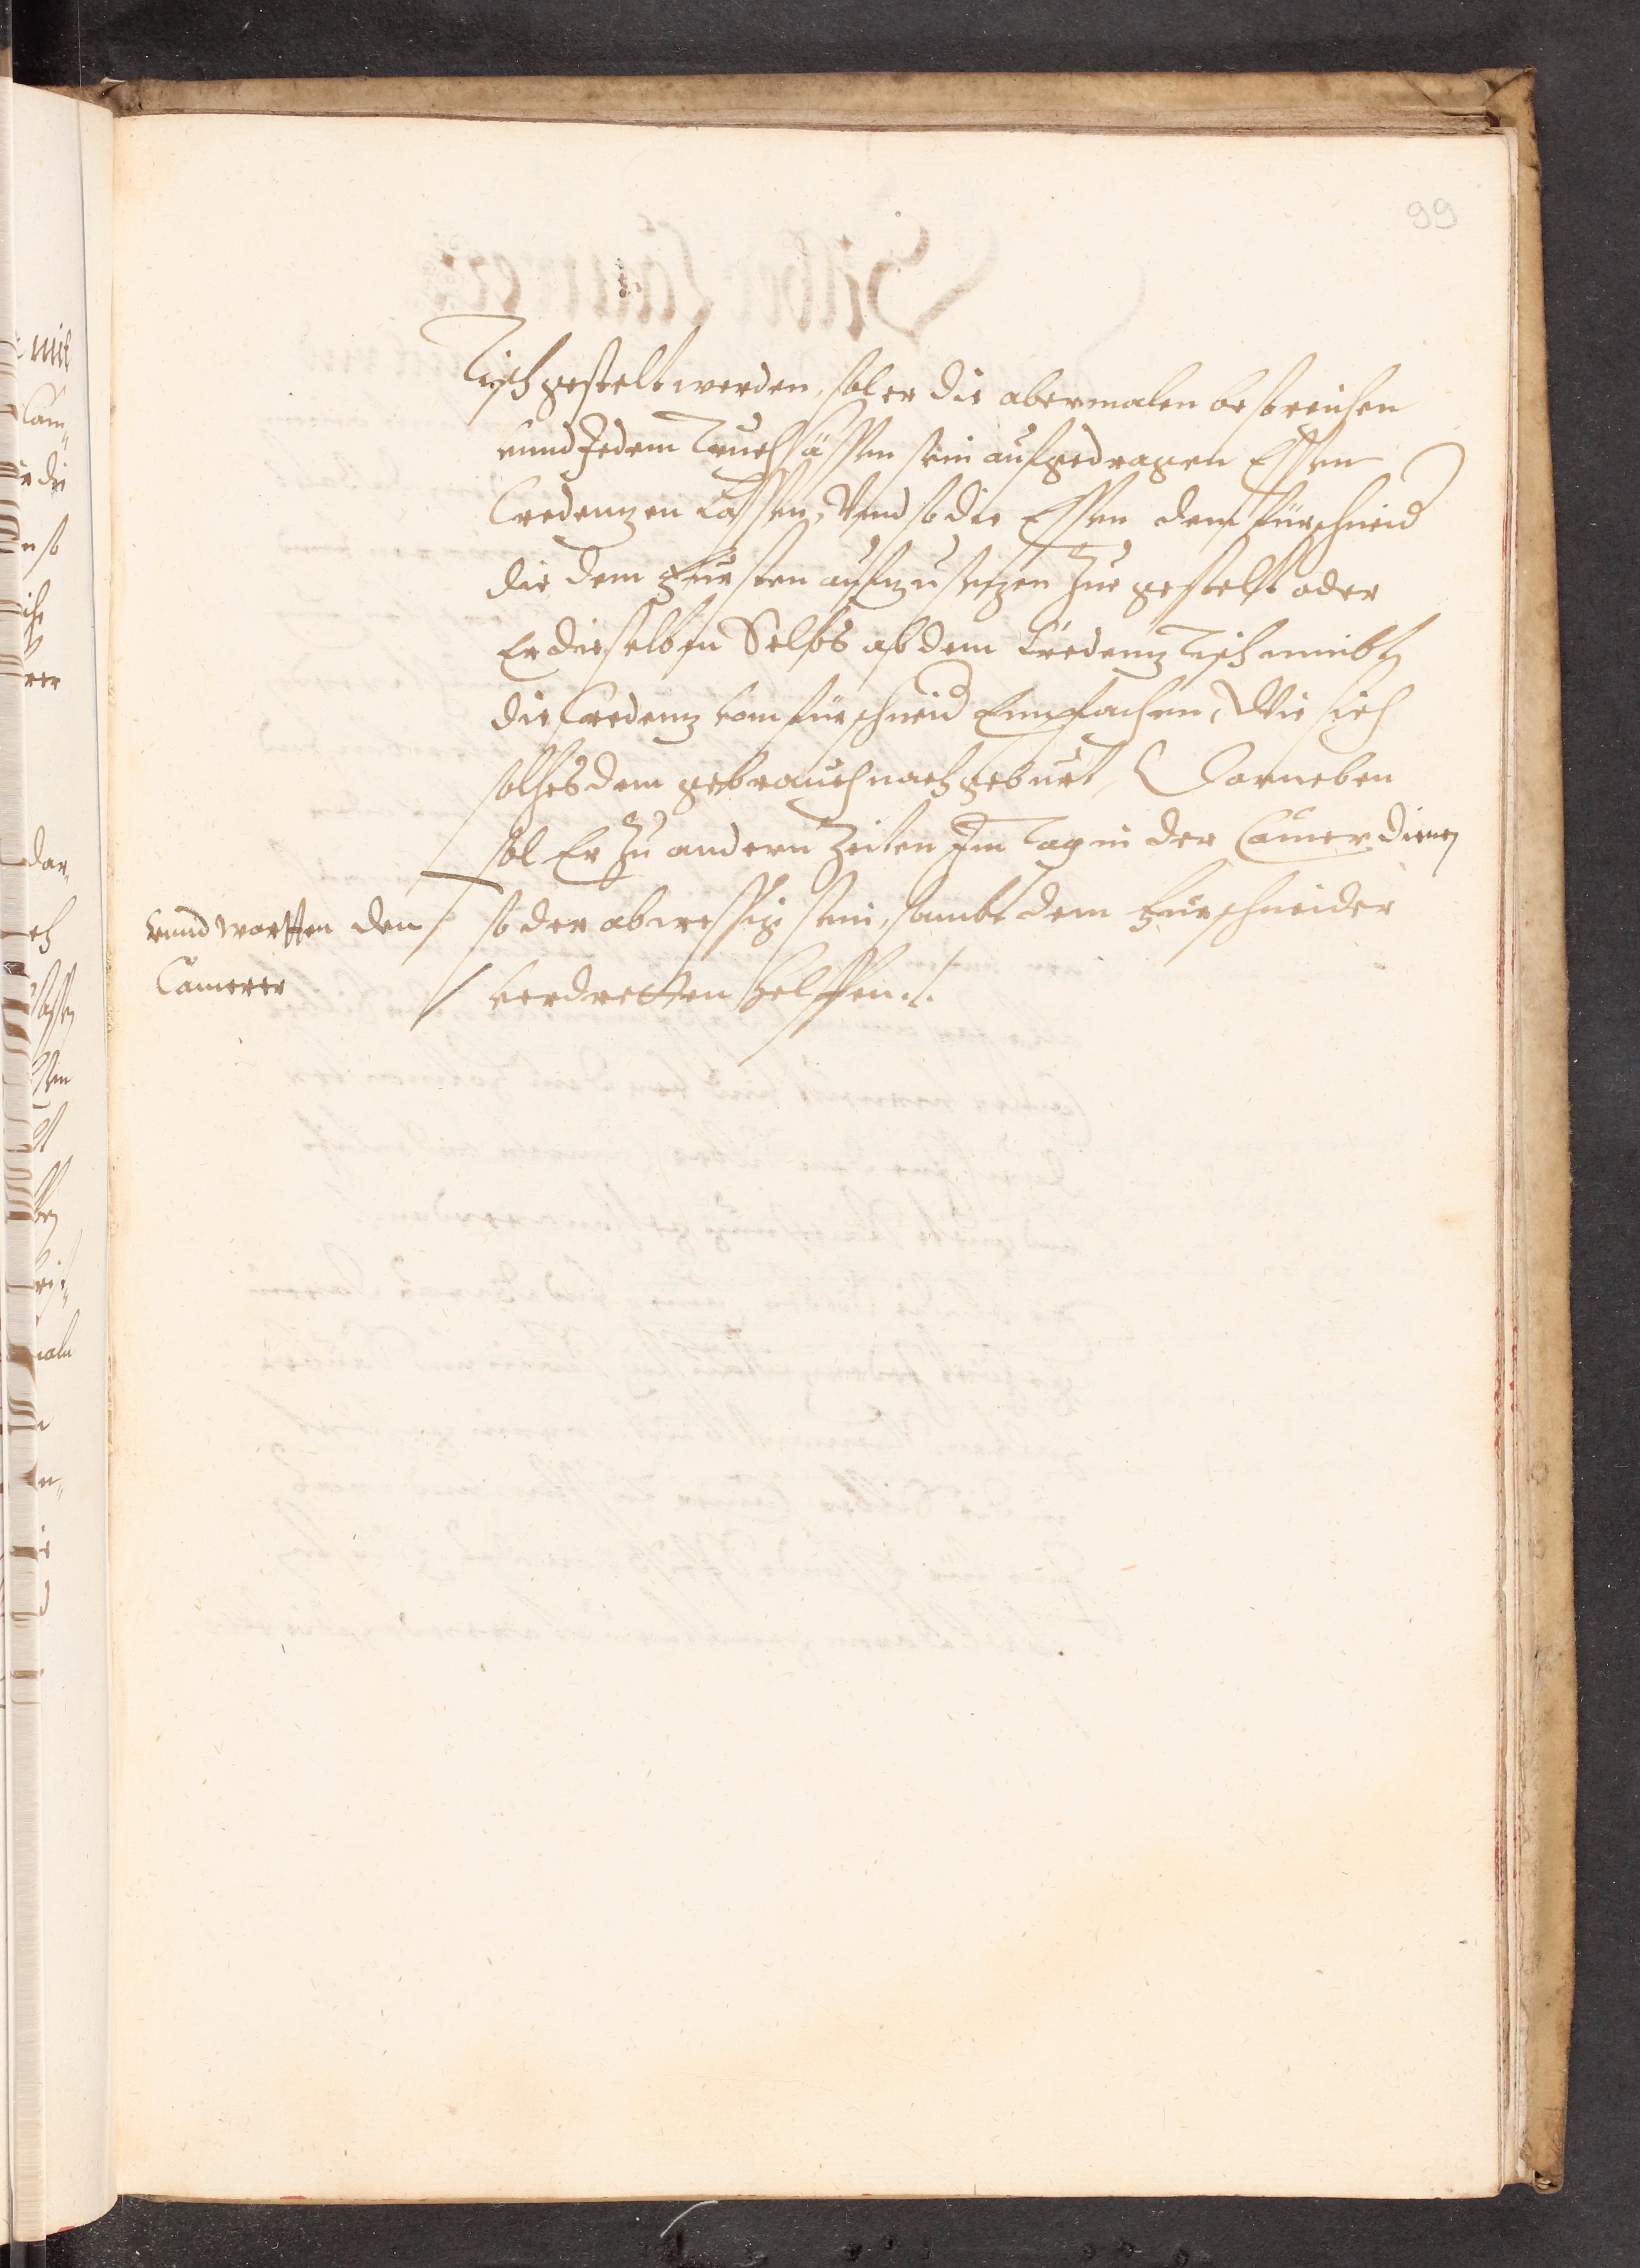 99
Tisch gestelt werden, sol er die abermalen bestreichen
vnnd Jedem Truchsässen sein aufgedragen Essen
Credenzen Lassen, Vnnd so die Essen dem fürschneid
die dem Fürsten aufzusetzen Zue gestelt oder
Er dieselben Selbs ab dem Credenz Tisch nimbt
die Credenz vom fürschneid Empfachen, Wie sich
solches dem gebrauch nach geburt, Darneben
sol Er Zu andern Zeiten Im Tag in der Camer dienen
so der abwessig sein, sambt dem Fürschneider
verdretten helffen ./.
vnnd wartten den
Camerer